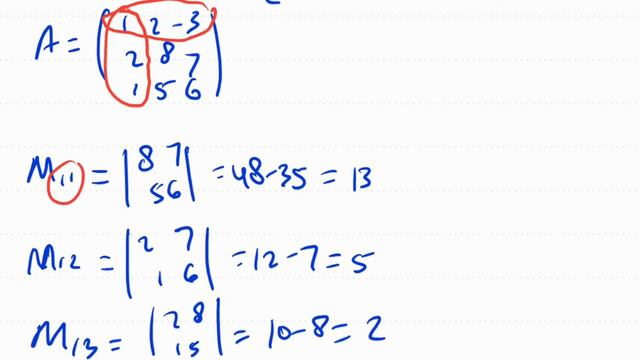 A = ( 1 2 -3
2 8 7
1 5 6 )
M11 = | 8 7
5 6 | = 48-35 = 13
M12 = | 2 7
1 6 | = 12-7 = 5
M13 = | 2 8
1 5 | = 10-8 = 2